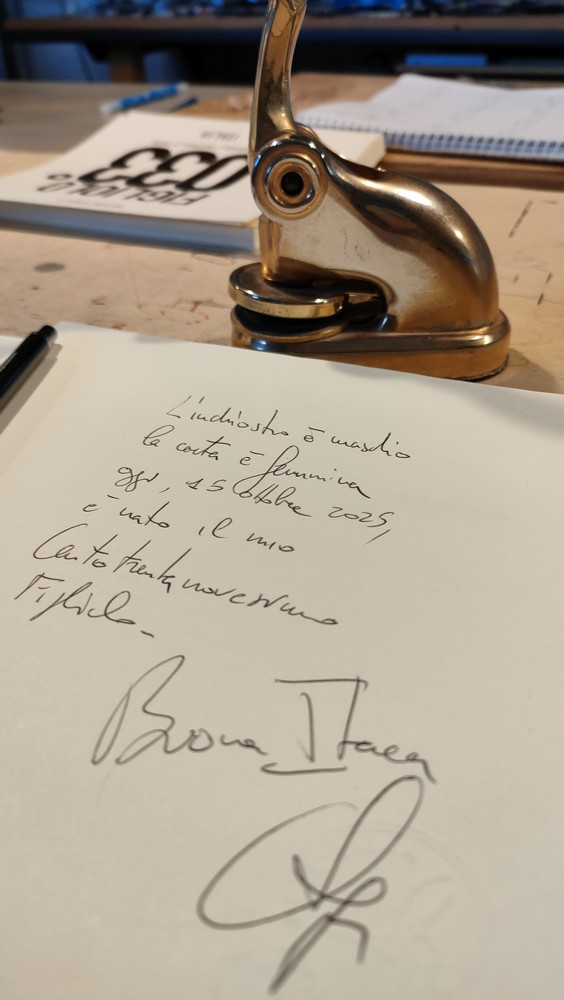 FIGLIUOLO
033
ITACA
L'inchiostro è maschio
la carta è femmina
oggi, 15 ottobre 2025,
è nato il mio
Centotrentanovesimo
Figliolo.
Buona Itaca